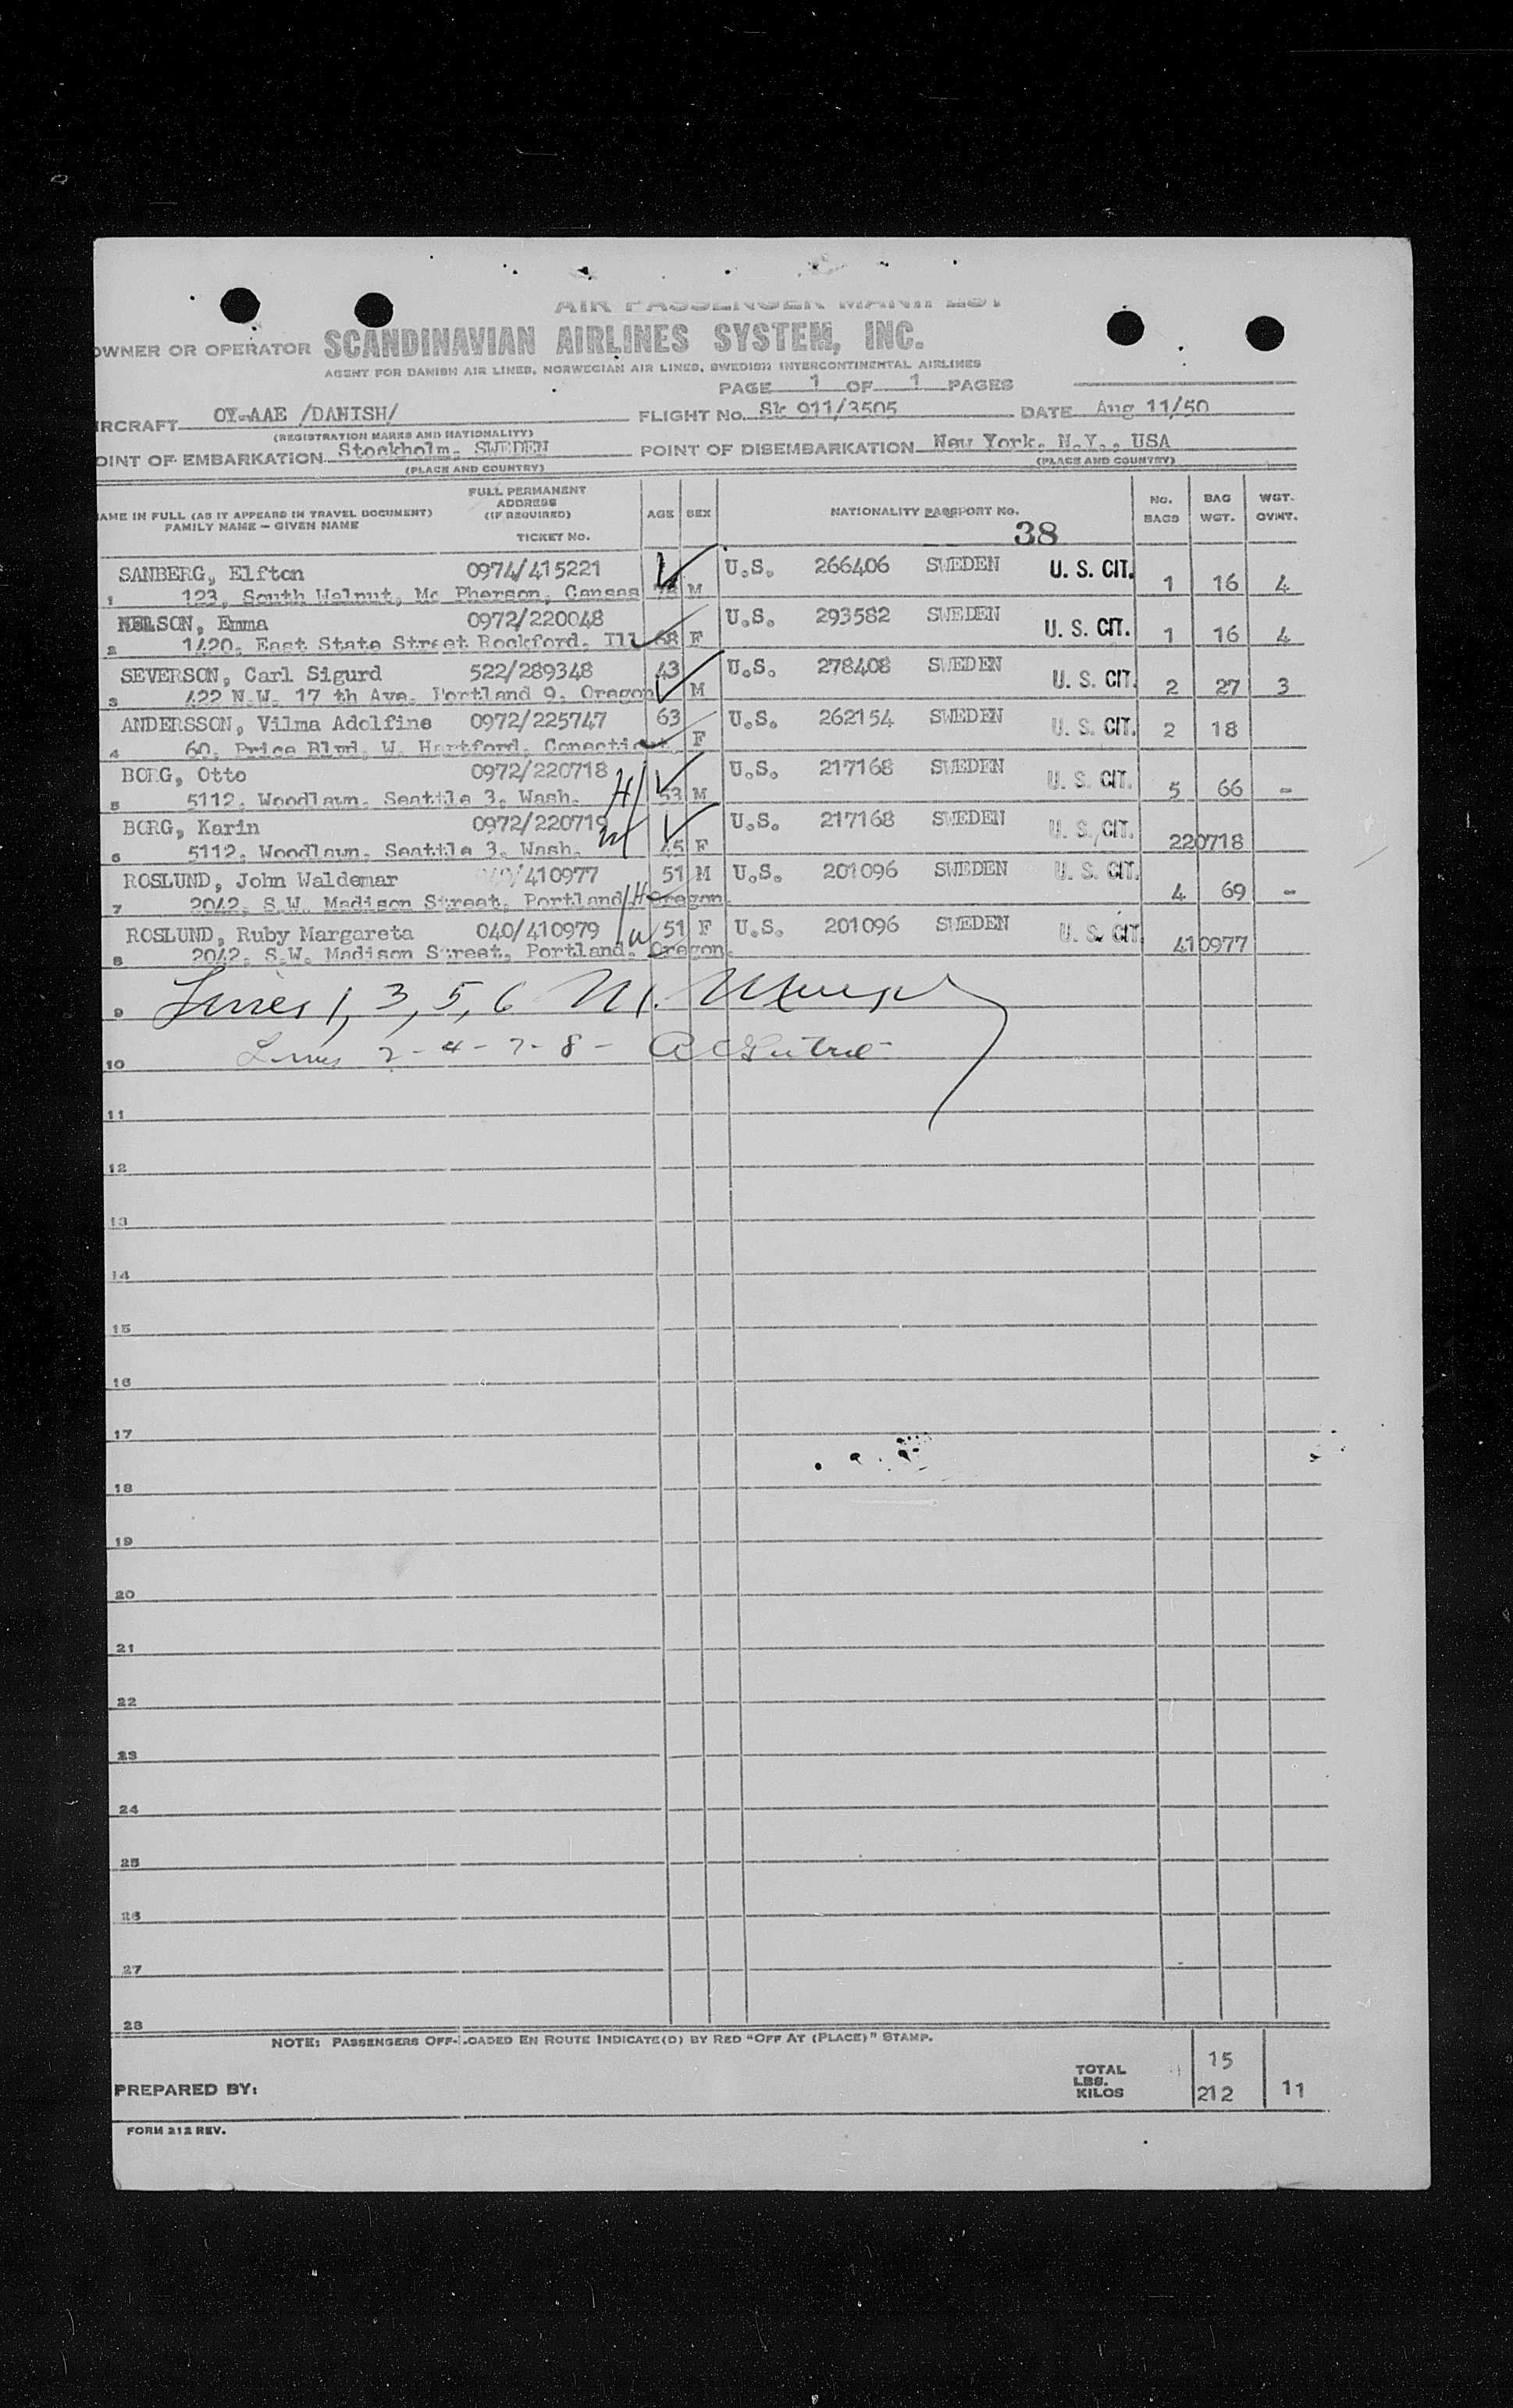 AIR PASSENGER MANIFEST
OWNER OR OPERATOR SCANDINAVIAN AIRLINES SYSTEM, INC.
AGENT FOR DANISH AIR LINES, NORWEGIAN AIR LINES, SWEDISH INTERCONTINENTAL AIRLINES
PAGE 1 OF 1 PAGES
IRCRAFT OY-AAE /DANISH/ FLIGHT NO. Sk 911/3505 DATE Aug 11/50
(REGISTRATION MARKS AND NATIONALITY)
OINT OF EMBARKATION Stockholm, SWEDEN POINT OF DISEMBARKATION New York, N.Y., USA
(PLACE AND COUNTRY) (PLACE AND COUNTRY)
AME IN FULL (AS IT APPEARS IN TRAVEL DOCUMENT) FAMILY NAME — GIVEN NAME FULL PERMANENT ADDRESS (IF REQUIRED) TICKET NO. AGE SEX NATIONALITY PASSPORT NO. NO. BAGS BAG WGT. WGT. OVWT.
38
SANBERG, Elfton 0974/415221 U.S. 266406 SWEDEN U. S. CIT. 1 16 4
1 123, South Walnut, Mc Pherson, Cansas M
NELSON, Emma 0972/220048 U.S. 293582 SWEDEN U. S. CIT. 1 16 4
2 1420, East State Street Rockford, Ill 68 F
SEVERSON, Carl Sigurd 522/289348 43 U.S. 278408 SWEDEN U. S. CIT. 2 27 3
3 422 N.W. 17 th Ave. Portland 9, Oregon M
ANDERSSON, Vilma Adolfine 0972/225747 63 U.S. 262154 SWEDEN U. S. CIT. 2 18
4 60, Price Blvd, W. Hartford, Conecticut F
BORG, Otto 0972/220718 H U.S. 217168 SWEDEN U. S. CIT. 5 66 -
5 5112, Woodlawn, Seattle 3, Wash. 53 M
BORG, Karin 0972/220719 W U.S. 217168 SWEDEN U. S. CIT. 220718
6 5112, Woodlawn, Seattle 3, Wash. 45 F
ROSLUND, John Waldemar 040/410977 51 M U.S. 201096 SWEDEN U. S. CIT. 4 69 -
7 2042, S.W. Madison Street, Portland, H Oregon.
ROSLUND, Ruby Margareta 040/410979 W 51 F U.S. 201096 SWEDEN U. S. CIT. 410977
8 2042, S.W. Madison Street, Portland, Oregon.
9 Lines 1, 3, 5, 6 M.
10 Lines 2-4-7-8-
11
12
13
14
15
16
17
18
19
20
21
22
23
24
25
26
27
28
NOTE: PASSENGERS OFF-LOADED EN ROUTE INDICATE(D) BY RED "OFF AT (PLACE)" STAMP.
PREPARED BY: TOTAL LBS. KILOS 15 212 11
FORM 212 REV.